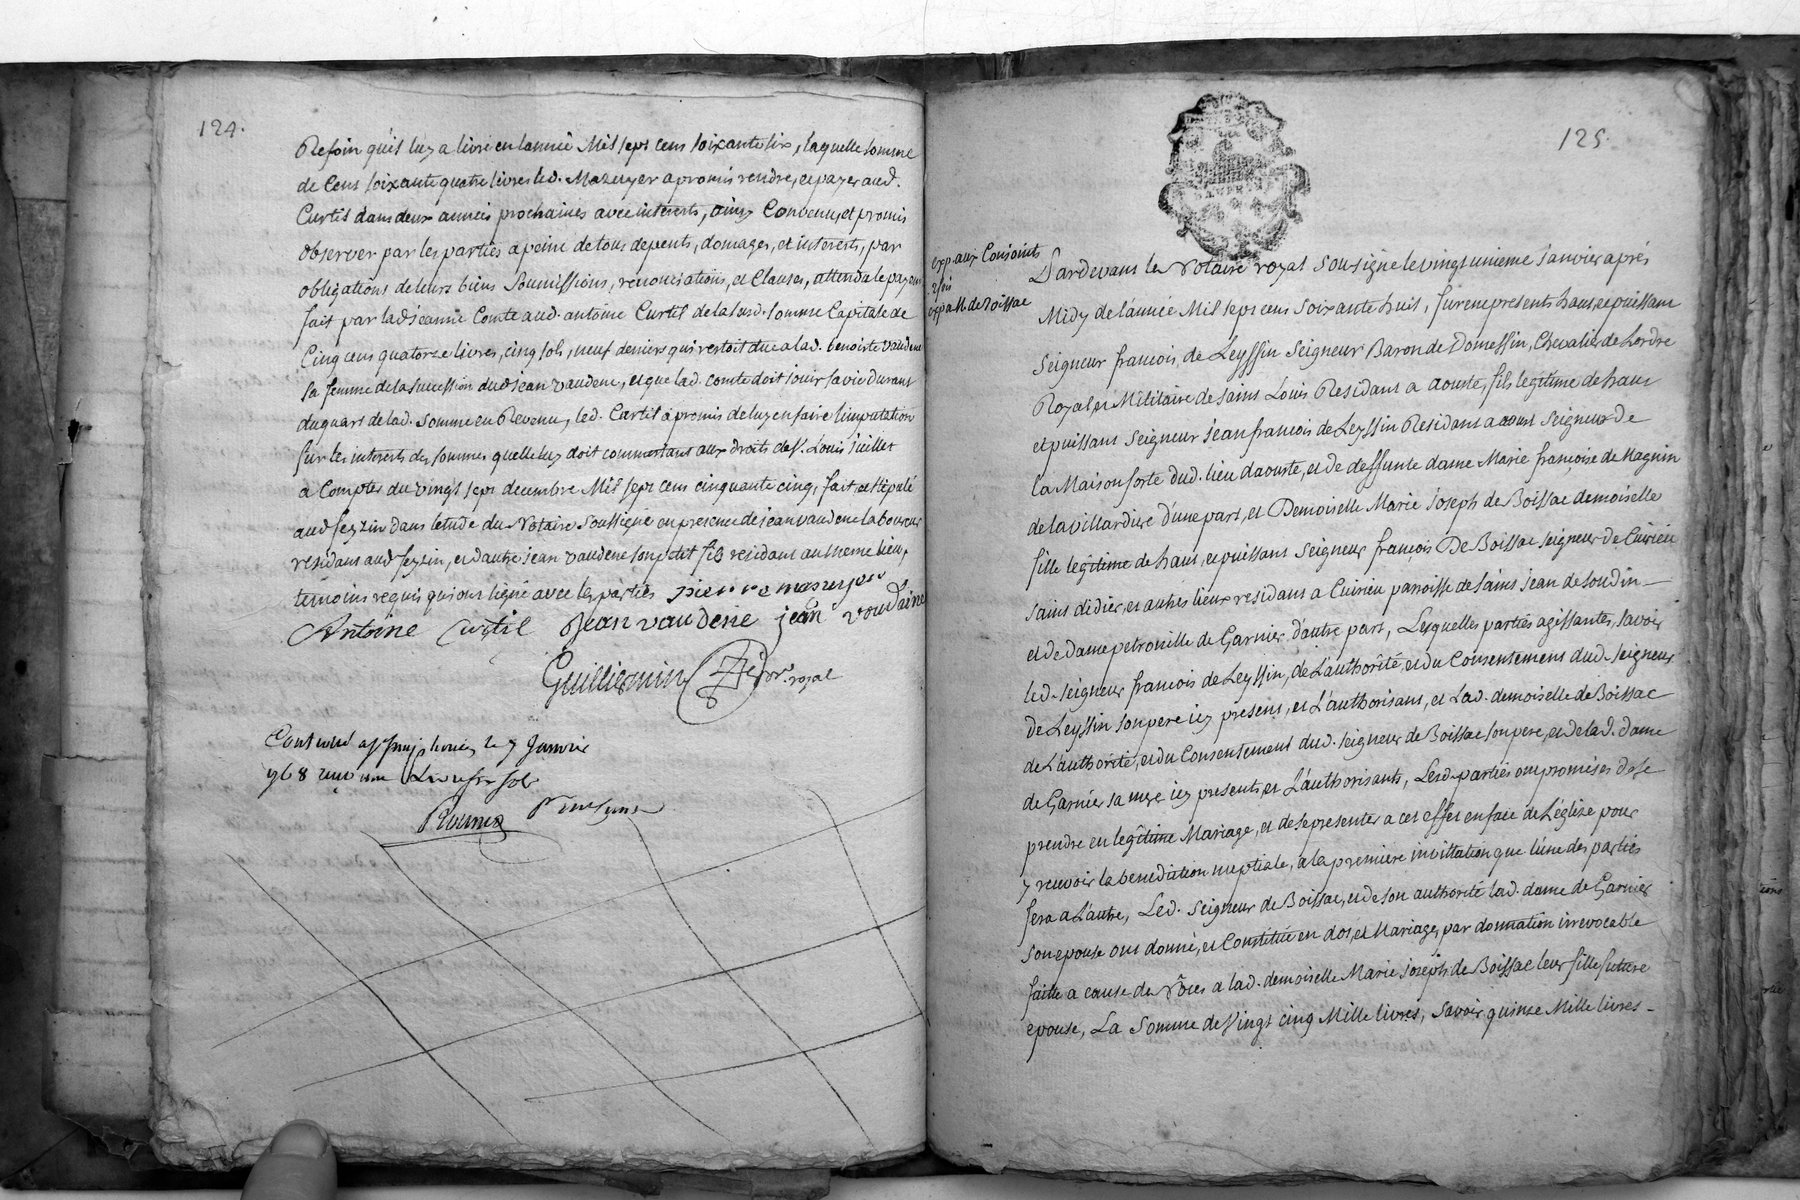 124.
Refoin quil luy a livré en lannée Mil sept cens soixante six, laquelle somme
de Cens soixante quatre livres led. Mazuyer a promis rendre, et payer aud.
Curtil dans deux années prochaines avec interests, ainsy Convenu, et promis
observer par les parties a peine de tous depents, domages, et interests, par
obligations de leurs biens Soumissions, renonciations, et Clauses, attendu le payem
fait par lad. jeanne Comte aud. antoine Curtil de la susd. somme Capitale de
Cinq cens quatorze livres, cinq sols, neuf deniers qui restoit due a lad. benoiste vaudene
sa femme de la sucession dud. jean vaudene, et que lad. comte doit jouir sa vie durant
du quart de lad. somme en Revenu, led. Curtil a promis de luy en faire l'imputation
sur les interests des sommes quelle luy doit comme etant aux droits de Sr. Louis juillet
a Compter du vingt sept decembre Mil sept cens cinquante cinq, fait, et stipulé
aud. feyzin dans létude du Notaire Soussigné en presence de jean vaudene laboureur
residant aud. feyzin, et d'autre jean vaudene son petit fils residant au meme lieu,
temoins requis qui ont signé avec les parties pierre mazuyer
Antoine Curtil Jean vaudene jean voudaine
Guilliermin Nore. royal
Controllé a le 7 Janvier
1768
125.
exp. aux Conjoints
2 fois
exp. a M. de Boissac
Pardevant le Notaire royal Sousigné le vingt unieme Janvier aprés
Midy de l'année Mil sept cens Soixante huit, furent presents haut, et puissant
Seigneur francois de Leyssin Seigneur Baron de Domessin, Chevalier de Lordre
Royal et Militaire de Saint Louis Residant a aouste, fils legitime de haut
et puissant Seigneur jean francois de Leyssin Residant a aoust Seigneur de
la Maison forte dud. lieu d'aouste, et de deffunte dame Marie françoise de Magnin
de la villardiere d'une part, et Demoiselle Marie Joseph de Boissac demoiselle
fille legitime de haut, et puissant Seigneur françois De Boissac Seigneur de Cuirieu
saint didier, et autres lieux residant a Cuirieu parroisse de Saint jean de Soudin
et de dame petronille de Garnier d'autre part, Lesquelles parties agissantes, savoir
led. Seigneur francois de Leyssin, de L'authorité, et du Consentement dud. Seigneur
de Leyssin son pere icy present, et L'authorisant, et Lad. demoiselle de Boissac
de L'authorité, et du Consentement dud. Seigneur de Boissac son pere, et de lad. dame
de Garnier sa mere icy presents, et L'authorisants, Lesd. parties ont promises de se
prendre en legitime Mariage, et de se presenter a cet effet en face de L'église pour
y recevoir la benediction nuptiale, a la premiere invittation que l'une des parties
fera a L'autre, Led. Seigneur de Boissac, et de son authorité lad. dame de Garnier
son epouse ont donné, et Constitué en dot, et Mariage, par donnation irrevocable
faitte a cause de Nôces a lad. demoiselle Marie joseph de Boissac leur fille future
epouse, La Somme de Vingt cinq Mille livres, Savoir quinze Mille livres -